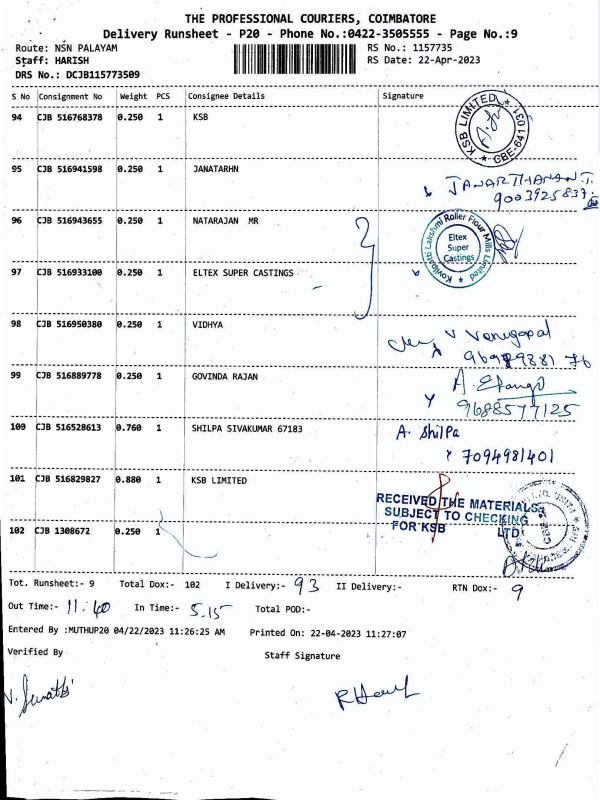 THE PROFESSIONAL COURIERS, COIMBATORE
Delivery Runsheet - P20 - Phone No.:0422-3505555 - Page No.:9
Route: NSN PALAYAM RS No.: 1157735
Staff: HARISH RS Date: 22-Apr-2023
DRS No.: DCJB115773509
S No Consignment No Weight PCS Consignee Details Signature
94 CJB 516768378 0.250 1 KSB
KSB LIMITED ★ CBE-641031 ★
95 CJB 516941598 0.250 1 JANATARHN
JANARTHANAN.T.
9003925837
96 CJB 516943655 0.250 1 NATARAJAN MR
Kovilpatti Lakshmi Roller Flour Mills Limited
Eltex
Super
Castings
97 CJB 516933100 0.250 1 ELTEX SUPER CASTINGS
98 CJB 516950380 0.250 1 VIDHYA
V Venugopal
99 CJB 516889778 0.250 1 GOVINDA RAJAN
A. Elango
9688577125
100 CJB 516528613 0.760 1 SHILPA SIVAKUMAR 67183
A. Shilpa
7094981401
101 CJB 516829827 0.880 1 KSB LIMITED
RECEIVED THE MATERIALS
SUBJECT TO CHECKING
FOR KSB LTD
102 CJB 1308672 0.250 1
Tot. Runsheet:- 9 Total Dox:- 102 I Delivery:- 93 II Delivery:- RTN Dox:- 9
Out Time:- 11.40 In Time:- 5.15 Total POD:-
Entered By :MUTHUP20 04/22/2023 11:26:25 AM Printed On: 22-04-2023 11:27:07
Verified By Staff Signature